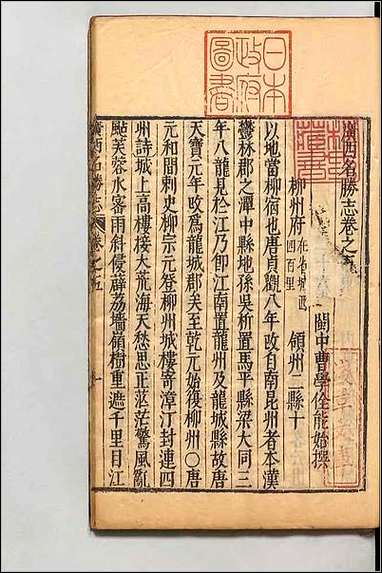 日本政府圖書
林氏藏書
廣西名勝志卷之五
閩中曹學佺能始撰
柳州府 在省城西四百里 領州二縣十
以地當柳宿也唐貞觀八年改自南昆州者本漢
鬱林郡之潭中縣地孫吳析置馬平縣梁大同三
年八龍見於江乃即江南置龍州及龍城縣故唐
天寶元年改爲龍城郡矣至乾元始復柳州〇唐
元和間刺史柳宗元登柳州城樓寄漳汀封連四
州詩城上高樓接大荒海天愁思正茫茫驚風亂
颭芙蓉水密雨斜侵薜荔墻嶺樹重遮千里目江
廣西名勝志 卷之五 一